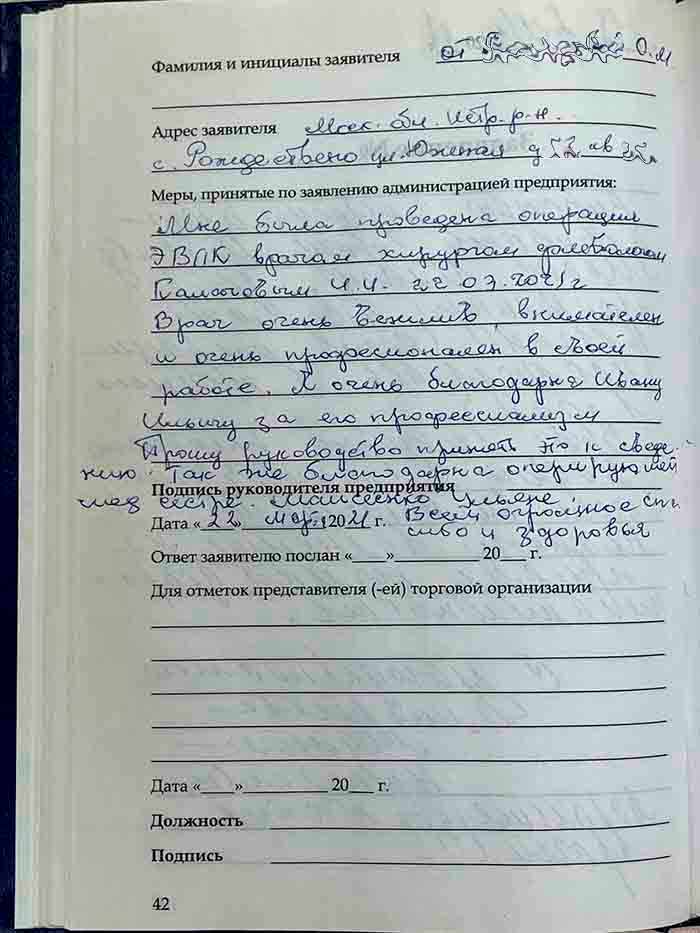 Фамилия и инициалы заявителя от О.М.
Адрес заявителя Моск. обл. Истр. р-н.
с. Рождествено ул. Южная д кв
Меры, принятые по заявлению администрацией предприятия:
Мне была проведена операция
ЭВЛК врачом хирургом флебологом
И.И. 22.03.2021г
Врач очень вежлив, внимателен
и очень професионален в своей
работе. Я очень благодарна Ивану
Ильичу за его профессиализм
Прошу руководство принять это к сведе-
нию. Так же благодарна оперирующей
мед сестре. Моисеенко Ульяне.
Подпись руководителя предприятия
Дата «22» мар. 2021 г. Всем огромное спа
сибо и здоровья
Ответ заявителю послан «___»__________ 20___ г.
Для отметок представителя (-ей) торговой организации
Дата «____»__________ 20___ г.
Должность
Подпись
42